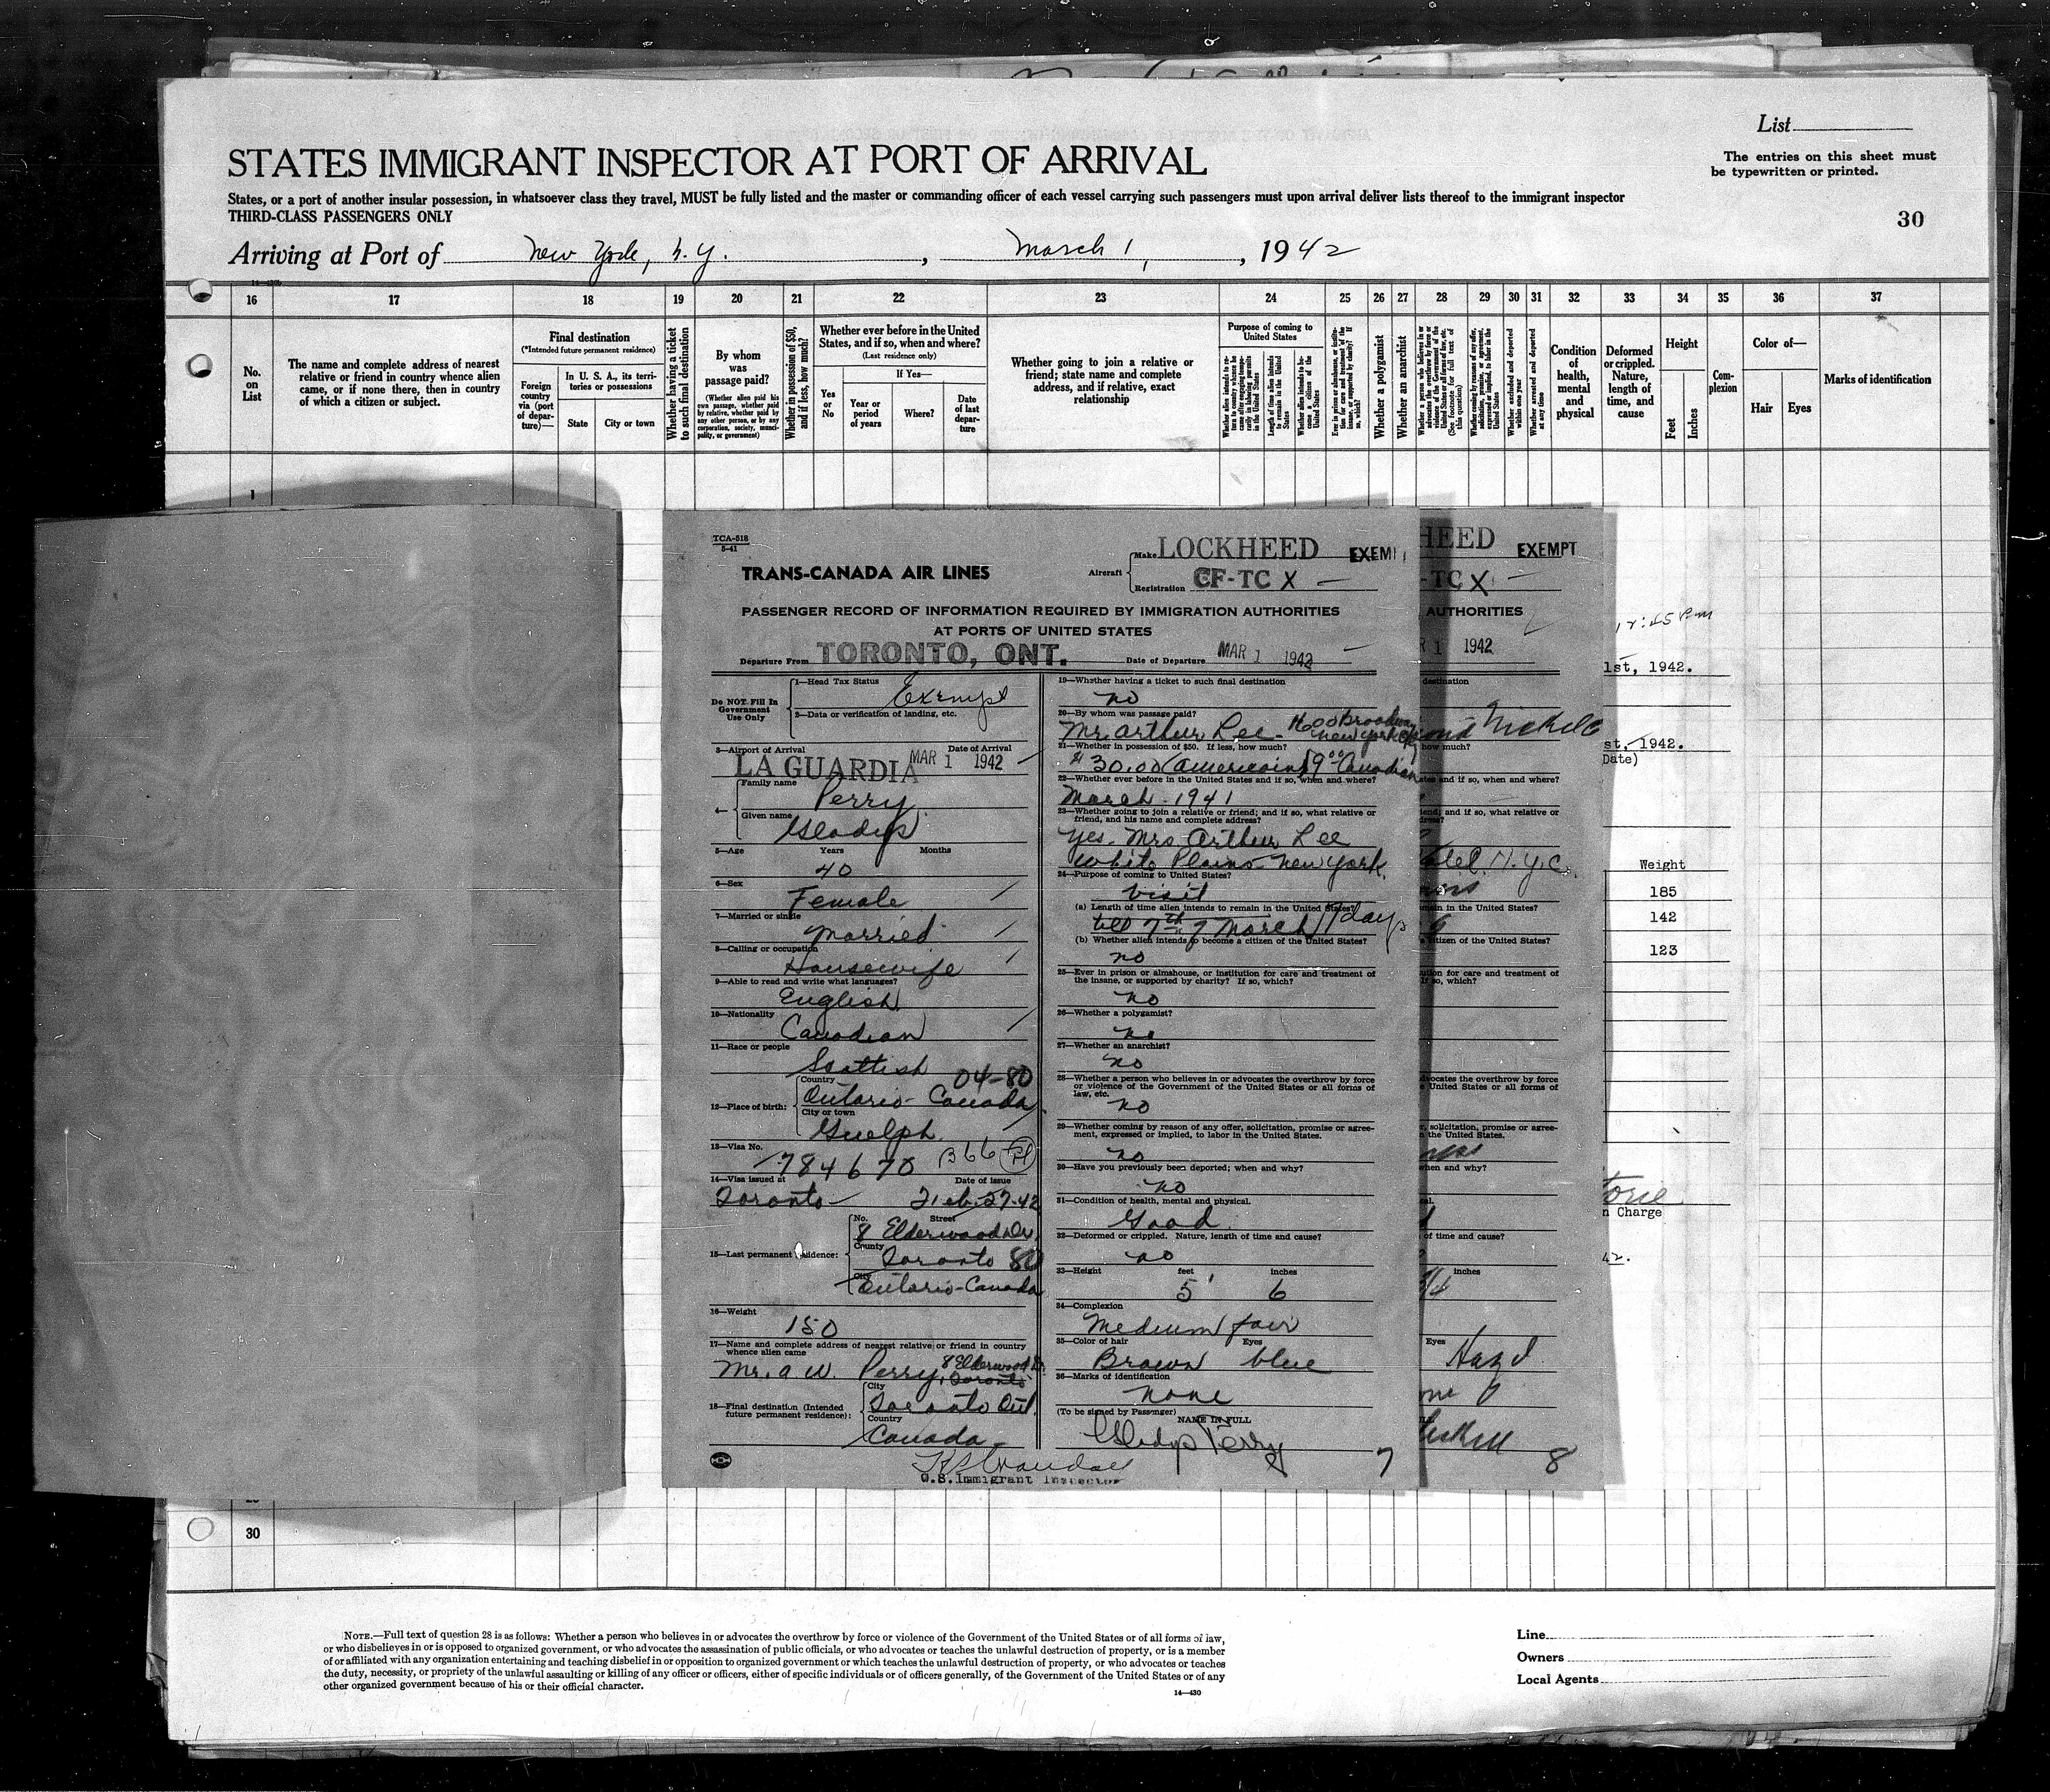 List
STATES IMMIGRANT INSPECTOR AT PORT OF ARRIVAL
The entries on this sheet must
be typewritten or printed.
States, or a port of another insular possession, in whatsoever class they travel, MUST be fully listed and the master or commanding officer of each vessel carrying such passengers must upon arrival deliver lists thereof to the immigrant inspector
THIRD-CLASS PASSENGERS ONLY
30
Arriving at Port of New York, N.Y., March 1, 1942
16 17 18 19 20 21 22 23 24 25 26 27 28 29 30 31 32 33 34 35 36 37
No. on List
The name and complete address of nearest
relative or friend in country whence alien
came, or if none there, then in country
of which a citizen or subject.
Final destination
(*Intended future permanent residence)
Foreign country via (port of departure)—
In U. S. A., its territories or possessions
State
City or town
Whether having a ticket to such final destination
By whom was passage paid?
(Whether alien paid his own passage, whether paid by relative, whether paid by any other person, or by any corporation, society, municipality, or government)
Whether in possession of $50, and if less, how much?
Whether ever before in the United
States, and if so, when and where?
(Last residence only)
Yes or No
If Yes—
Year or period of years
Where?
Date of last departure
Whether going to join a relative or
friend; state name and complete
address, and if relative, exact
relationship
Purpose of coming to
United States
Length of time alien intends to remain in the United States
Whether alien intends to become a citizen of the United States
Whether a polygamist
Whether an anarchist
Whether excluded and deported within one year
Whether arrested and deported at any time
Condition of health, mental and physical
Deformed or crippled. Nature, length of time, and cause
Height
Feet
Inches
Complexion
Color of—
Hair
Eyes
Marks of identification
1
TCA-518
5-41
TRANS-CANADA AIR LINES
Aircraft
Make LOCKHEED
Registration CF-TC X —
PASSENGER RECORD OF INFORMATION REQUIRED BY IMMIGRATION AUTHORITIES
AT PORTS OF UNITED STATES
Departure From TORONTO, ONT. Date of Departure MAR 1 1942
Do NOT Fill In
Government
Use Only
1—Head Tax Status
Exempt
2—Data or verification of landing, etc.
3—Airport of Arrival Date of Arrival
LA GUARDIA MAR 1 1942
4—
Family name
Perry
Given name
Gladys
5—Age Years Months
40
6—Sex
Female
7—Married or single
Married
8—Calling or occupation
Housewife
9—Able to read and write what languages?
English
10—Nationality
Canadian
11—Race or people
Scottish 04-80
12—Place of birth:
Country
Ontario - Canada
City or town
Guelph
13—Visa No.
784670 B66
14—Visa issued at Date of issue
Toronto Feb-27-42
15—Last permanent residence:
No. Street
8 Elderwood Dr.
County
Toronto 80
City
Ontario-Canada
16—Weight
150
17—Name and complete address of nearest relative or friend in country
whence alien came
Mr. A W. Perry, 8 Elderwood Dr. Toronto
18—Final destination (Intended
future permanent residence):
City
Toronto Ont.
Country
Canada
U.S. Immigrant Inspector
19—Whether having a ticket to such final destination
no
20—By whom was passage paid?
Mr. Arthur Lee - 1600 Broadway New York City
21—Whether in possession of $50. If less, how much?
$30.00 American $9.00 Canadian
22—Whether ever before in the United States and if so, when and where?
March - 1941
23—Whether going to join a relative or friend; and if so, what relative or
friend, and his name and complete address?
Yes. Mrs Arthur Lee
White Plains - New York.
24—Purpose of coming to United States?
Visit
(a) Length of time alien intends to remain in the United States?
till 7th of March 7 days
(b) Whether alien intends to become a citizen of the United States?
no
25—Ever in prison or almshouse, or institution for care and treatment of
the insane, or supported by charity? If so, which?
no
26—Whether a polygamist?
no
27—Whether an anarchist?
no
28—Whether a person who believes in or advocates the overthrow by force
or violence of the Government of the United States or all forms of
law, etc.
no
29—Whether coming by reason of any offer, solicitation, promise or agree-
ment, expressed or implied, to labor in the United States.
no
30—Have you previously been deported; when and why?
no
31—Condition of health, mental and physical.
Good
32—Deformed or crippled. Nature, length of time and cause?
no
33—Height feet inches
5' 6
34—Complexion
Medium fair
35—Color of hair Eyes
Brown blue
36—Marks of identification
none
(To be signed by Passenger) NAME IN FULL
Gladys Perry
7
HEED EXEMPT
-TC X —
AUTHORITIES
R 1 1942
destination
how much?
and if so, when and where?
end; and if so, what relative or
N.Y.C.
main in the United States?
citizen of the United States?
tion for care and treatment of
so, which?
dvocates the overthrow by force
United States or all forms of
, solicitation, promise or agree-
the United States.
when and why?
of time and cause?
inches
Eyes
Hazel
8
12:45 Pm
1st, 1942.
st, 1942.
Date)
Weight
185
142
123
n Charge
42.
30
NOTE.—Full text of question 28 is as follows: Whether a person who believes in or advocates the overthrow by force or violence of the Government of the United States or of all forms of law,
or who disbelieves in or is opposed to organized government, or who advocates the assassination of public officials, or who advocates or teaches the unlawful destruction of property, or is a member
of or affiliated with any organization entertaining and teaching disbelief in or opposition to organized government or which teaches the unlawful destruction of property, or who advocates or teaches
the duty, necessity, or propriety of the unlawful assaulting or killing of any officer or officers, either of specific individuals or of officers generally, of the Government of the United States or of any
other organized government because of his or their official character.
14—430
Line
Owners
Local Agents